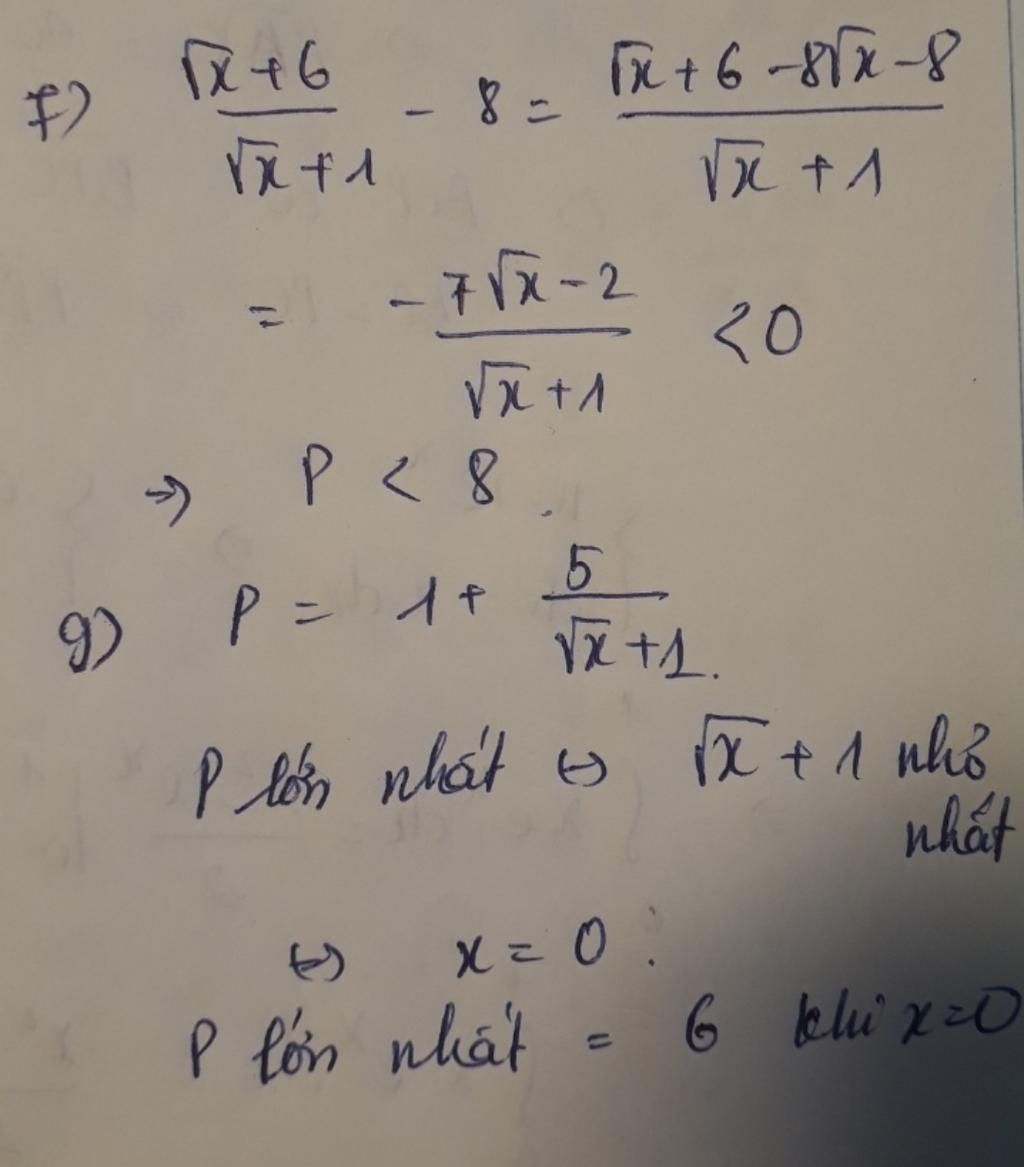 f) (√x + 6)/(√x + 1) - 8 = (√x + 6 - 8√x - 8)/(√x + 1)
= (-7√x - 2)/(√x + 1) < 0
→ P < 8.
g) P = 1 + 5/(√x + 1).
P lớn nhất ⇔ √x + 1 nhỏ
nhất
⇔ x = 0.
P lớn nhất = 6 khi x = 0